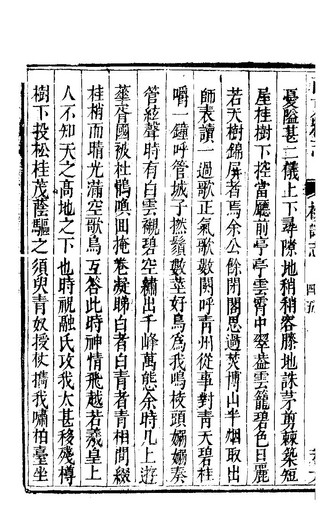 志
四五
憂隘甚二儀上下尋隙地稍稍客勝地誅茅剪棘築短
屋桂樹下控當廳前亭亭雲霄中翠蓋雲籠碧色日麗
若天樹錦屏者焉余公餘閉閣思過焚博山半烟取出
師表讀一過歌正氣歌數闋呼青州從事對青天碧桂
嚼一鍾呼管城子撚鬚數莖好鳥為我鳴枝頭嫋嫋奏
管絃聲時有白雲襯碧空繡出千峰萬態余時几上遊
華胥國被杜鵑喚回掩卷凝睇白者白青者青相間綴
桂梢而晴光滿空歌鳥互答此時神情飛越若羲皇上
人不知天之高地之下也時祝融氏攻我太甚移殘樽
樹下投松桂茂蔭驅之須臾青奴授杖攜我嘯柏臺坐